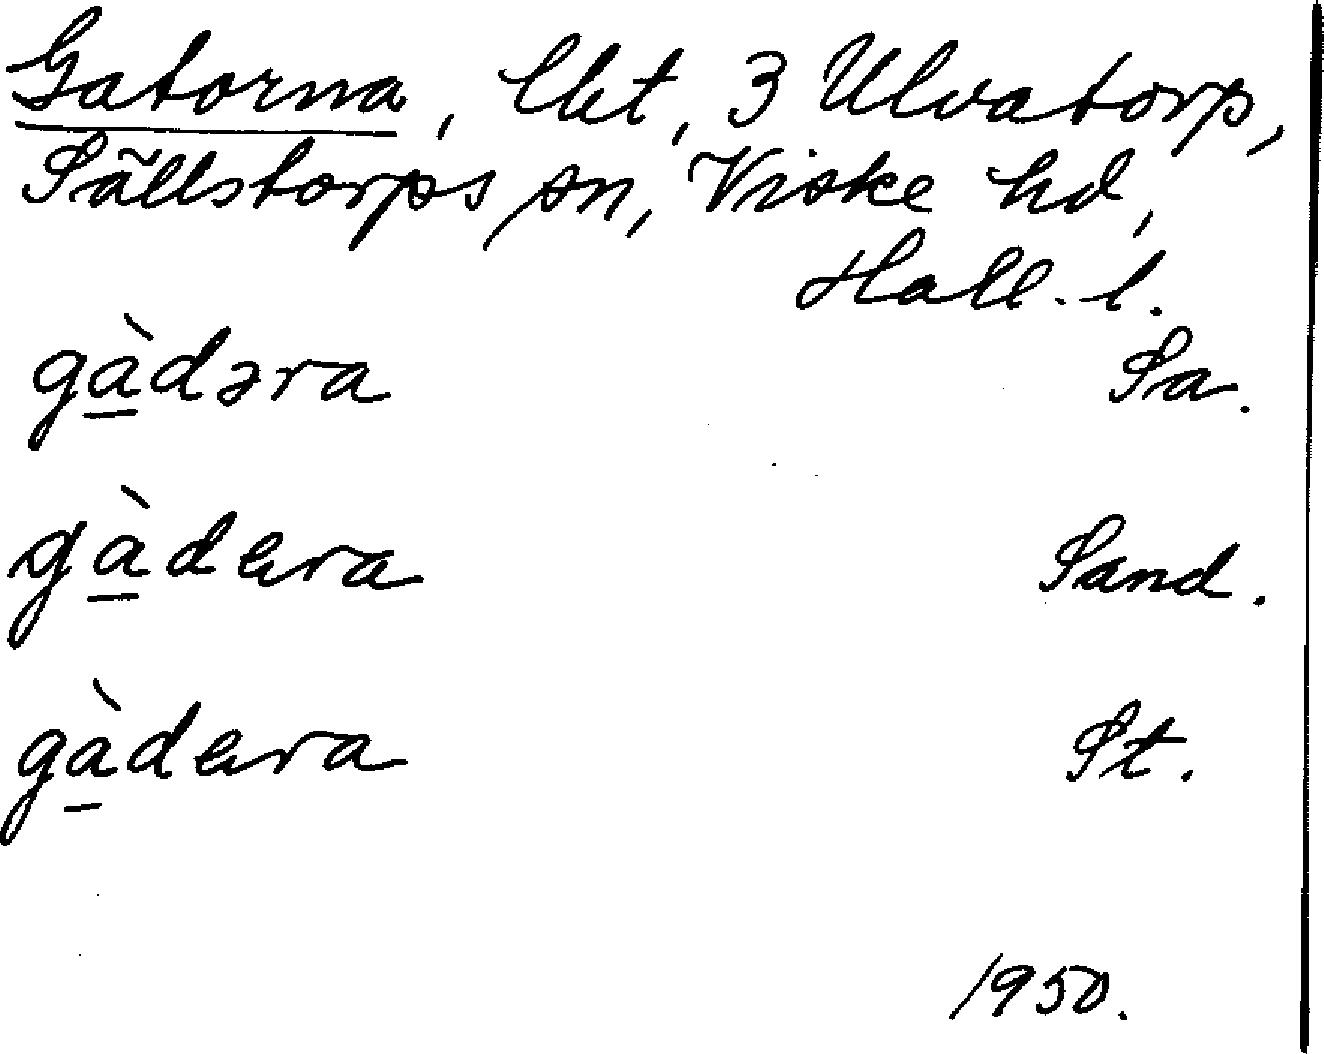 Gatorna, lht, 3 Ulvatorp,
Sällstorps sn, Viske hd,
Hall. l.
gàdəra Sa.
gàdeɩra Sand.
gàdeɩra St.
1950.